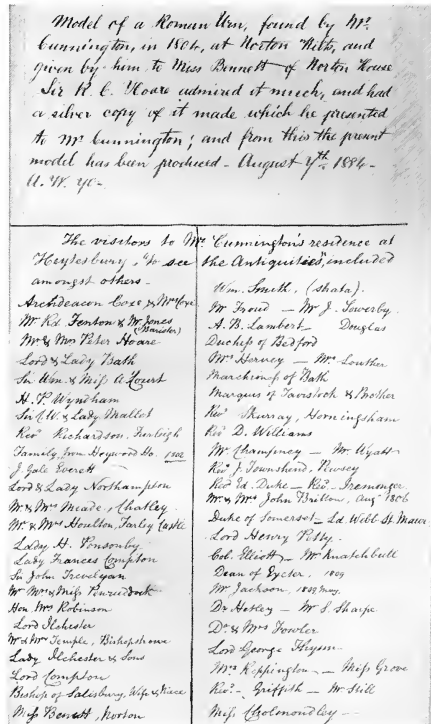 Model of a Roman Urn, found by Mr.
Cunnington, in 1804, at Norton Wilts, and
given by him to Miss Bennett of Norton House
Sir R. C. Hoare admired it much, and had
a silver copy of it made which he presented
to Mr Cunnington; and from this the present
model has been produced - August 7th. 1884 -
The visitors to Mr Cunnington's residence at
Heytesbury, "to see the Antiquities", included
amongst others -
Archdeacon Coxe & Mrs Coxe
Mr Rd. Fenton & Mr Jones
(Barister)
Mr & Mrs Peter Hoare
Lord & Lady Bath
Sir Wm. & Miss A'Court
H. P. Wyndham
Sir & Lady Mallet
Revd Richardson, Farleigh
Family from Heywood Ho. 1802
J. Gale Everett
Lord & Lady Northampton
Mr & Mrs Meade, Chatley
Mr & Mrs Houlton, Farley Castle
Lady H. Ponsonby
Lady Frances Compton
Sir John Trevelyan
Mr Mrs & Miss Penruddock
Hon. Mrs Robinson
Lord Ilchester
Mr & Mrs Temple, Bishopstrowe
Lady Ilchester & Sons
Lord Compton
Bishop of Salisbury, Wife & Niece
Miss Benett, Norton
Wm. Smith, (strata).
Mr Sowerby
A. B. Lambert - Douglas
Duchess of Bedford
Mrs Hervey - Mrs
Marchioness of Bath
Marquis of Tavistock & Brother
Revd Skurray, Horningsham
Revd D. Williams
Mr Champney - Mr. Wyatt
Revd J. Townshend, Pewsey
Revd Ed. Duke - Revd. Iremonger
Mr. & Mrs John Britton, Aug. 1806
Duke of Somerset - Ld. Webb St. Maur
Lord Henry Petty
Col. Elliott - Mr Knatchbull
Dean of Exeter, 1809
Mr Jackson, 1809, May.
Dr - Mr S. Sharpe
Dr & Mrs Fowler
Lord George Thynn
Mrs - Miss Grove
Revd - Griffith - Mr Still
Miss Cholmondley -